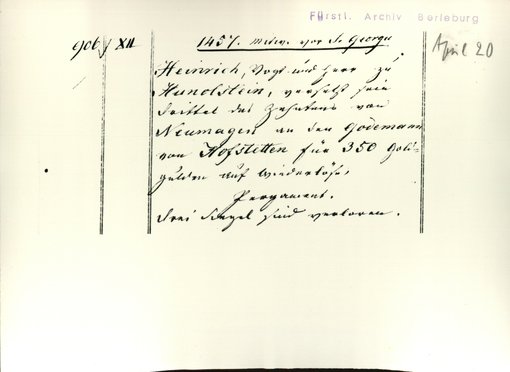 Fürstl. Archiv Berleburg
906/ XII
1457. mitw. vor S. Georgii
April 20
Heinrich, Vogt und Herr zu
Hunolstein, versetzt sein
Drittel des Zehntens von
Neumagen an den Godemann
von Hofstetten für 350 Gold-
gulden auf Wiederlöse,
Pergament.
Drei Siegel sind verloren.